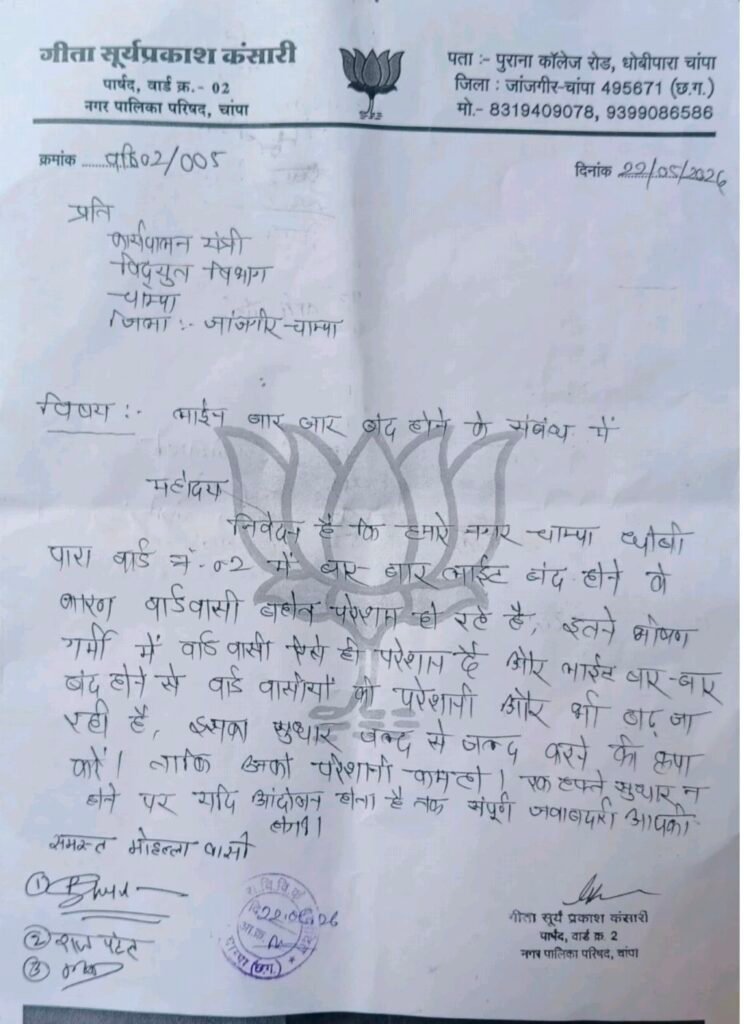 गीता सूर्यप्रकाश कंसारी
पार्षद, वार्ड क्र.- 02
नगर पालिका परिषद, चांपा
पता :- पुराना कॉलेज रोड, धोबीपारा चांपा
जिला : जांजगीर-चाम्पा 495671 (छ.ग.)
मो.- 8319409078, 9399086586
क्रमांक ........ 02/005
दिनांक 22/05/2026
प्रति
कार्यपालन यंत्री
विद्युत विभाग
चाम्पा
जिला :- जांजगीर-चाम्पा
विषय :- लाईन बार बार बंद होने के संबंध में
महोदय
निवेदन है कि हमारे नगर चाम्पा धोबी
पारा वार्ड नं.-02 में बार बार लाईट बंद होने के
कारण वार्डवासी बहोत परेशान हो रहे है, इतने भीषण
गर्मी में वार्ड वासी ऐसे ही परेशान है और लाईट बार-बार
बंद होने से वार्ड वासीयों की परेशानी और भी बढ़ जा
रही है, इसका सुधार जल्द से जल्द करने की कृपा
करें। ताकि परेशानी कम हो। एक हफ्ते सुधार न
होने पर यदि आंदोलन होता है संपूर्ण जवाबदारी आपकी
होगी।
समस्त मोहल्ला वासी
①
② राज पटेल
③
22.05.26
चाम्पा (छग.)
गीता सूर्य प्रकाश कंसारी
पार्षद, वार्ड क्र. 2
नगर पालिका परिषद, चांपा